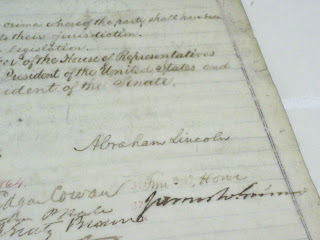 crime whereof the party shall have been
to their jurisdiction.
legislation.
of the House of Representatives
President of the United States and
ident of the Senate.
Abraham Lincoln
Edgar Cowan
Howe
B Gratz Brown